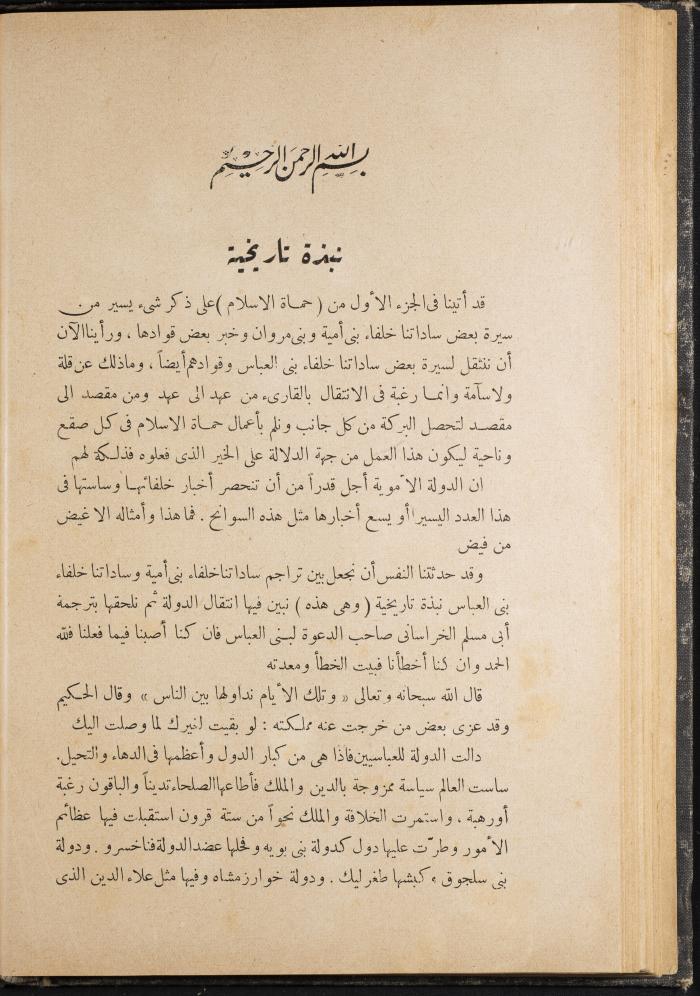 بسم الله الرحمن الرحيم
نبذة تاريخية
قد أتينا فى الجزء الأول من ( حماة الاسلام ) على ذكر شىء يسير من
سيرة بعض ساداتنا خلفاء بنى أمية وبنى مروان وخبر بعض قوادها ، ورأينا الآن
أن ننتقل لسيرة بعض ساداتنا خلفاء بنى العباس وقوادهم أيضاً ، وماذلك عن قلة
ولاسآمة وانما رغبة فى الانتقال بالقارىء من عهد الى عهد ومن مقصد الى
مقصد لتحصل البركة من كل جانب ونلم بأعمال حماة الاسلام فى كل صقع
وناحية ليكون هذا العمل من جهة الدلالة على الخير الذى فعلوه فذلكة لهم
ان الدولة الأموية أجل قدراً من أن تنحصر أخبار خلفائها وساستها فى
هذا العدد اليسير أو يسع أخبارها مثل هذه السوانح . فما هذا وأمثاله الا غيض
من فيض
وقد حدثتنا النفس أن نجعل بين تراجم ساداتنا خلفاء بنى أمية وساداتنا خلفاء
بنى العباس نبذة تاريخية ( وهى هذه ) نبين فيها انتقال الدولة ثم نلحقها بترجمة
أبى مسلم الخراسانى صاحب الدعوة لبنى العباس فان كنا أصبنا فيما فعلنا فلله
الحمد وان كنا أخطأنا فبيت الخطأ ومعدته
قال الله سبحانه وتعالى « وتلك الأيام نداولها بين الناس » وقال الحكيم
وقد عزى بعض من خرجت عنه مملكته : لو بقيت لغيرك لما وصلت اليك
دالت الدولة للعباسيين فاذا هى من كبار الدول وأعظمها فى الدهاء والتحيل.
ساست العالم سياسة ممزوجة بالدين والملك فأطاعها الصلحاء تديناً والباقون رغبة
أورهبة ، واستمرت الخلافة والملك نحواً من ستة قرون استقبلت فيها عظائم
الأمور وطرّت عليها دول كدولة بنى بويه وفحلها عضد الدولة فناخسرو . ودولة
بنى سلجوق ، كبشها طغرليك . ودولة خوارزمشاه وفيها مثل علاء الدين الذى